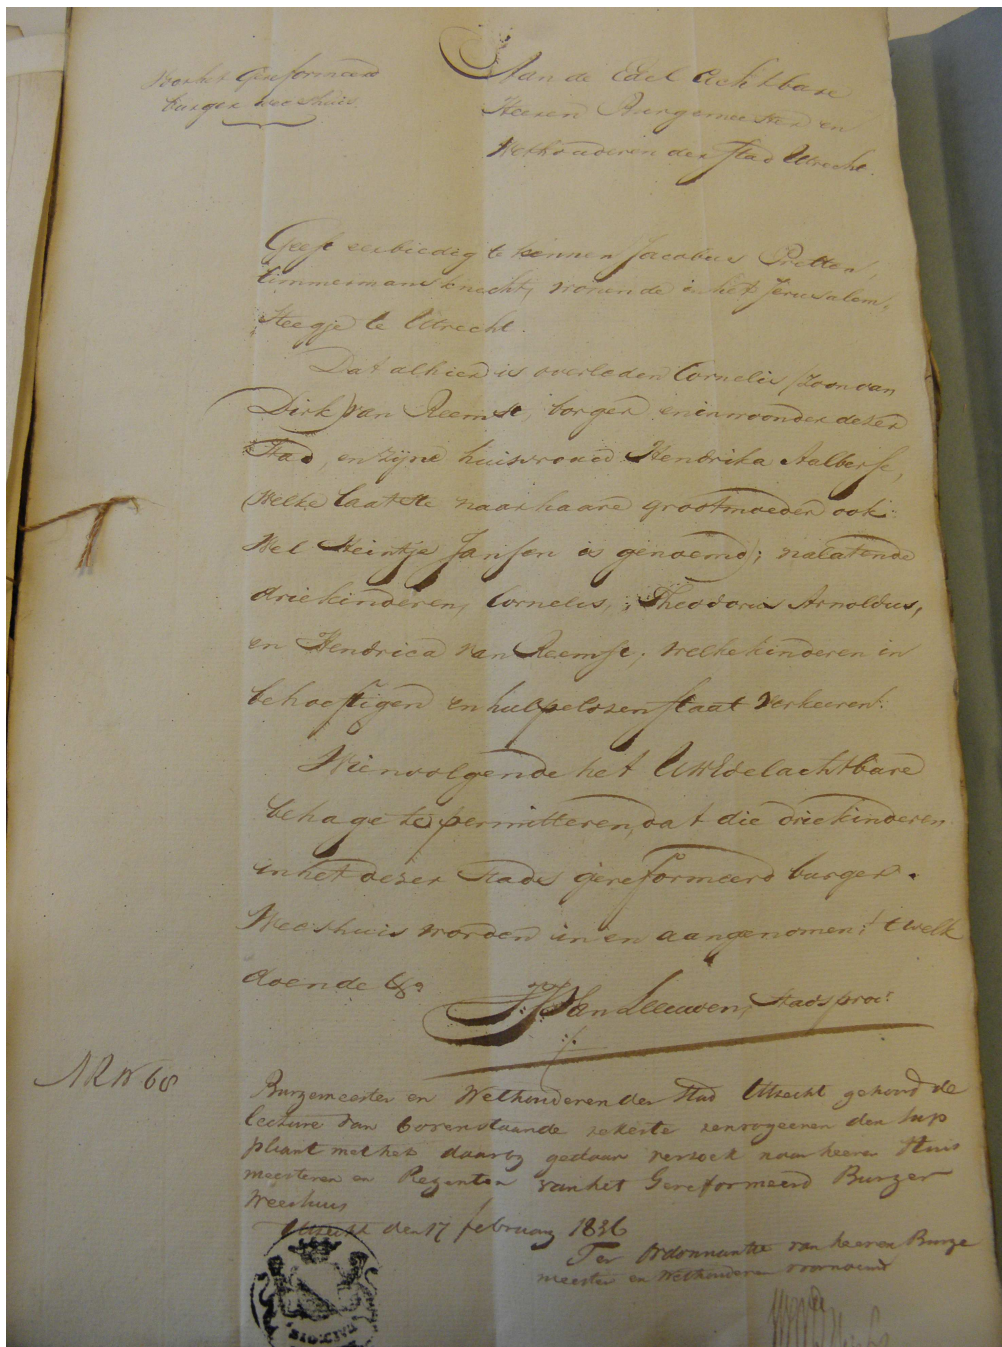 Voor het Gereformeerd
burger weeshuis
Aan de Edel Achtbare
Heeren Burgemeester en
Wethouderen der stad Utrecht.
Geeft eerbiedig te kennen Jacobus Pretter,
timmermans knecht, wonende in het Jerusalem,
steegje te Utrecht.
Dat alhier is overleden Cornelis (zoon van
Dirk) van Reemst, borger en inwoonder dezer
stad, en zijne huisvrouw Hendrika Aalberse,
welke laatste naar haare grootmoeder ook
wel Heintje Jansen is genoemd; nalatende
drie kinderen, Cornelis, Theodorus Arnoldus,
en Hendrica van Reemst; welke kinderen in
behoeftigen en hulpelozen staat verkeeren.
Wienvolgende het UwEdelachtbare
behage te permitteren, dat die drie kinderen
in het dezer stads gereformeerd burger
Weeshuis worden in en aangenomen; 't welk
doende &a
van Leeuwen, Stadsproc:
N 68
Burgemeester en Wethouderen der stad Utrecht gehoord de
lecture van bovenstaande rekeste renvoyeeren den sup
pliant met het daarbij gedaan verzoek naar heeren Huis
meesteren en Regenten van het Gereformeerd Burger
Weeshuis
Utrecht den 17 februarij 1836
Ter ordonnantie van heeren Burge
meester en wethouderen voornoemd